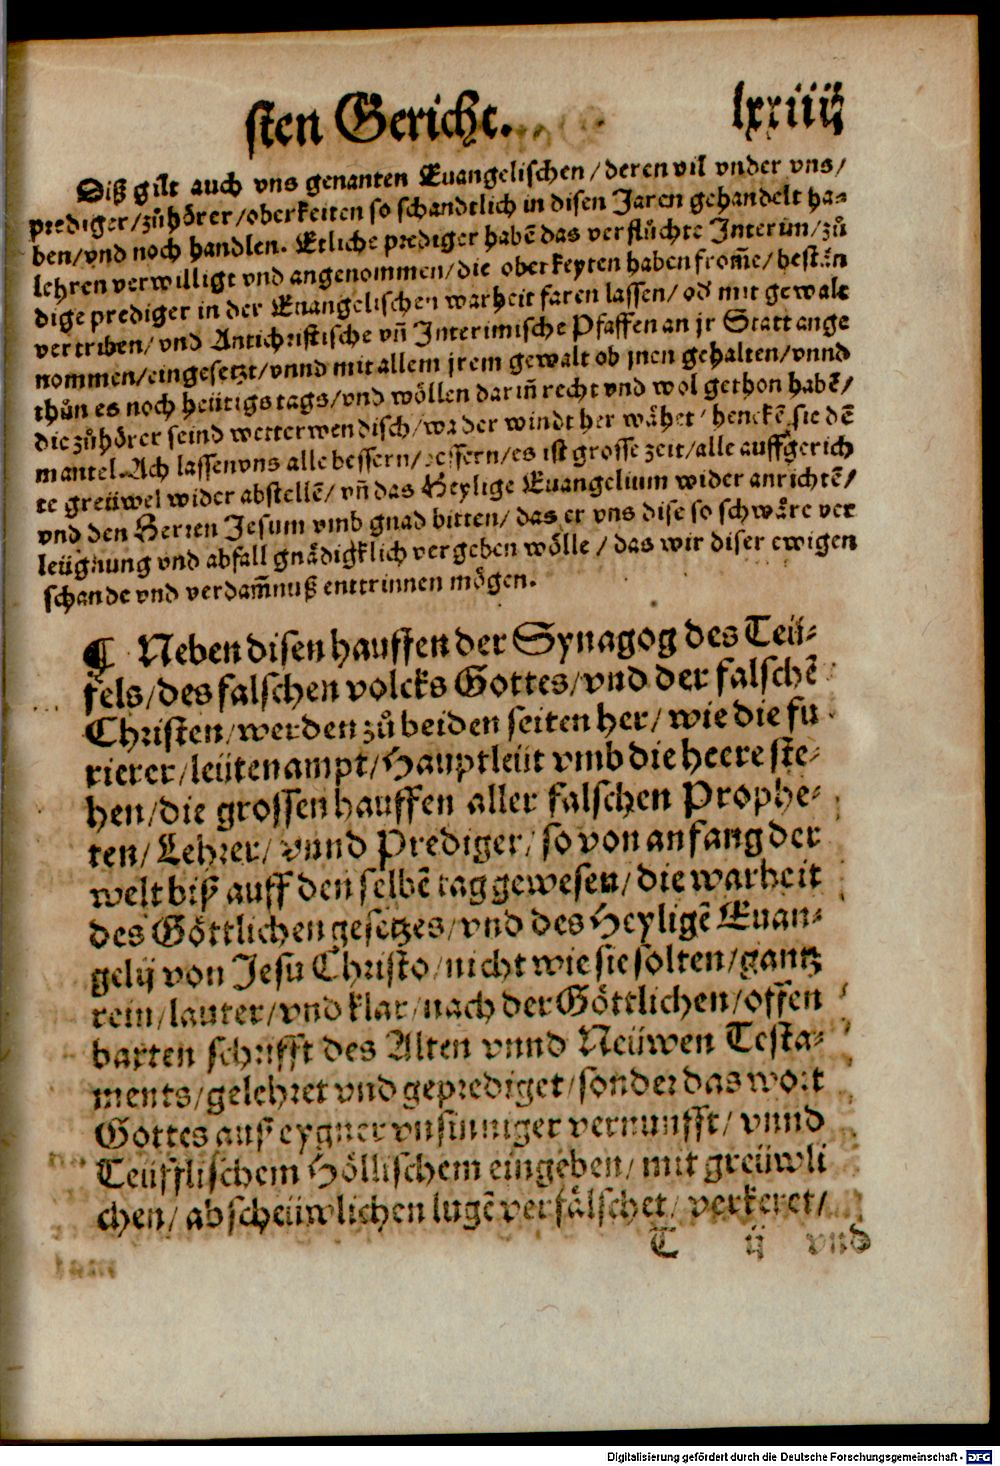 sten Gericht. lxxiiij
Diß gilt auch vns genanten Euangelischen/deren vil vnder vns/
prediger/zůhörer/oberkeiten so schandtlich in disen Jaren gehandelt ha-
ben/vnd noch handlen. Etliche prediger habē das verflůchte Interim/zů
lehren verwilligt vnd angenommen/die oberkeyten haben from̄e/bestān
dige prediger in der Euangelischen warheit faren lassen/od' mit gewalt
vertriben/vnd Antichristische vn̄ Interimische Pfaffen an jr Statt ange
nommen/eingesetzt/vnnd mit allem jrem gewalt ob jnen gehalten/vnnd
thůn es noch heütigs tags/vnd wöllen darin̄ recht vnd wol gethon habē/
die zůhörer seind wetterwendisch/wa der windt her wähet/henckē sie dē
mantel. Ach lassen vns alle bessern/bessern/es ist grosse zeit/alle auffgerich
te greüwel wider abstellē/vn̄ das Heylige Euangelium wider anrichtē/
vnd den Herren Jesum vmb gnad bitten/das er vns dise so schwåre ver
leügnung vnd abfall gnädigklich vergeben wölle/das wir diser ewigen
schande vnd verdam̄nuß enttrinnen mögen.
¶ Neben disen hauffen der Synagog des Teü-
fels/des falschen volcks Gottes/vnd der falschē
Christen/werden zů beiden seiten her/wie die fu
rierer/leütenampt/Hauptleüt vmb die heere ste-
hen/die grossen hauffen aller falschen Prophe-
ten/Lehrer/vnnd Prediger/so von anfang der
welt biß auff den selbē tag gewesen/die warheit
des Göttlichen gesetzes/vnd des Heyligē Euan-
gelij von Jesu Christo/nicht wie sie solten/gantz
rein/lauter/vnd klar/nach der Göttlichen/offen
barten schrifft des Alten vnnd Neüwen Testa-
ments/gelehret vnd geprediget/sonder das wort
Gottes auß eygner vnsinniger vernunfft/vnnd
Teüfflischem Höllischem eingeben/mit greüwli
chen/abscheüwlichen lugē verfälschet/verkeret/
T ij vnd
Digitalisierung gefördert durch die Deutsche Forschungsgemeinschaft - DFG